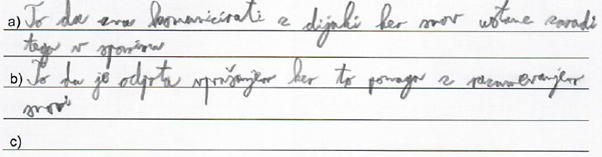 a) To da zna komunicirati z dijaki ker snov ustane zaradi
tega v spominu
b) To da je odprta vprašanjem ker to pomaga z razumevanjem
snovi
c)